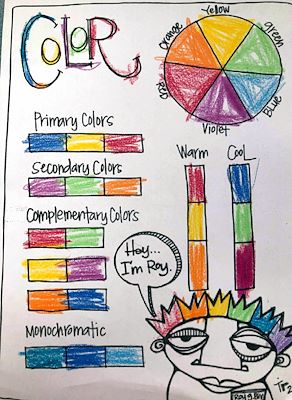 COLOR
Yellow
Orange
green
Red
Blue
Violet
Primary Colors
Secondary Colors
Warm
Cool
Complementary Colors
Hey...
I'm Roy.
Monochromatic